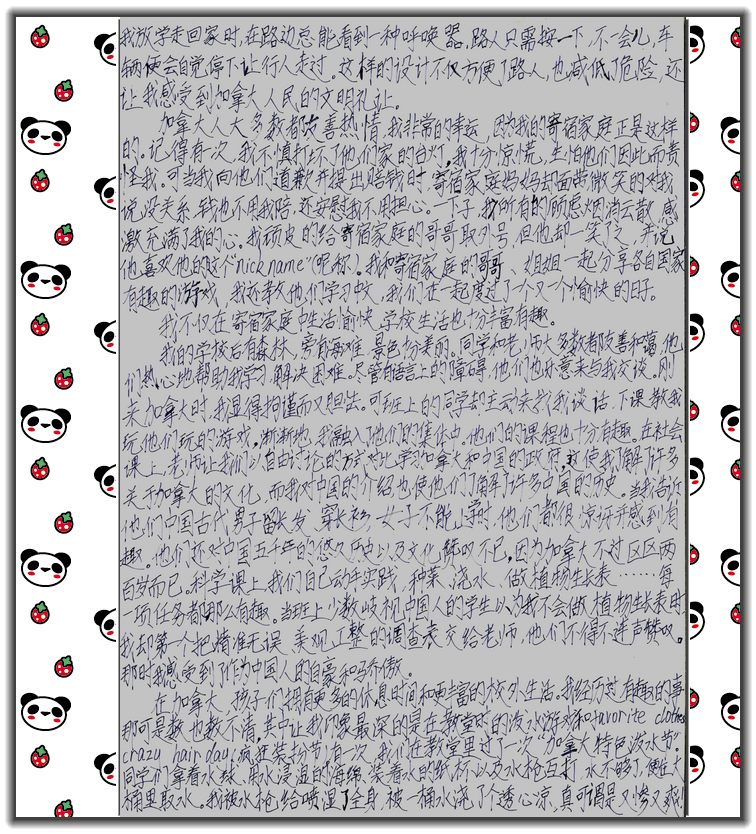 我放学走回家时,在路边总能看到一种呼唤器,路人只需按一下,不一会儿,车
辆便会自觉停下让行人走过。这样的设计不仅方便了路人,也减低了危险,还
让我感受到加拿大人民的文明礼让。
加拿大人大多数都友善热情,我非常的幸运,因为我的寄宿家庭正是这样
的。记得有一次,我不慎打坏了他们家的台灯。我十分惊慌,生怕他们因此而责
怪我。可当我向他们道歉并提出赔钱时,寄宿家庭妈妈却面带微笑的对我
说没关系,钱也不用我陪,还安慰我不用担心。一下子,我所有的顾虑烟消云散,感
激充满了我的心。我顽皮的给寄宿家庭的哥哥取外号,但他却一笑了之,并说
他喜欢他的这个"nickname"(昵称)。我和寄宿家庭的哥哥、姐姐一起分享各自国家
有趣的游戏,我还教他们学习中文,我们在一起度过了一个又一个愉快的日子。
我不仅在寄宿家庭中生活愉快,学校生活也十分丰富有趣。
我的学校后有森林,旁有海滩,景色十分美丽。同学和老师大多数都友善和蔼,他
们热心地帮助我学习,解决困难。尽管有语言上的障碍,他们也乐意来与我交谈。刚
来加拿大时,我显得拘谨而又胆怯。可班上的同学却主动来找我谈话,下课教我
玩他们玩的游戏。渐渐地,我融入了他们的集体中。他们的课程也十分有趣。在社会
课上,老师让我们以自由讨论的方式对比学习加拿大和中国的政府,这使我了解了许多
关于加拿大的文化,而我对中国的介绍也使他们了解了许多中国的历史。当我告诉
他们中国古代男子留长发,穿长衫,女子不能上学时,他们都很惊讶并感到有
趣。他们还对中国五千年的悠久历史以及文化赞叹不已,因为加拿大不过区区两
百岁而已。科学课上,我们自己动手实践,种菜、浇水、做植物生长表……每
一项任务都那么有趣。当班上少数歧视中国人的学生以为我不会做植物生长表时,
我却第一个把精准无误、美观工整的调查表交给老师,他们不得不连声赞叹。
那时我感受到了作为中国人的自豪和骄傲。
在加拿大,孩子们拥有更多的休息时间和更丰富的校外生活。我经历过有趣的事
那可是数也数不清,其中让我印象最深的是在教堂时的泼水游戏和favorite clothes
crazy hair day(疯狂装扮节)有一次,我们在教堂里过了一次"加拿大特色泼水节"。
同学们拿着水球、用水浸湿的海绵、装着水的纸杯以及水枪互打,水不够了,便在大
桶里取水。我被水枪给喷湿了全身,被一桶水浇了个透心凉,真可谓是又惨又爽!